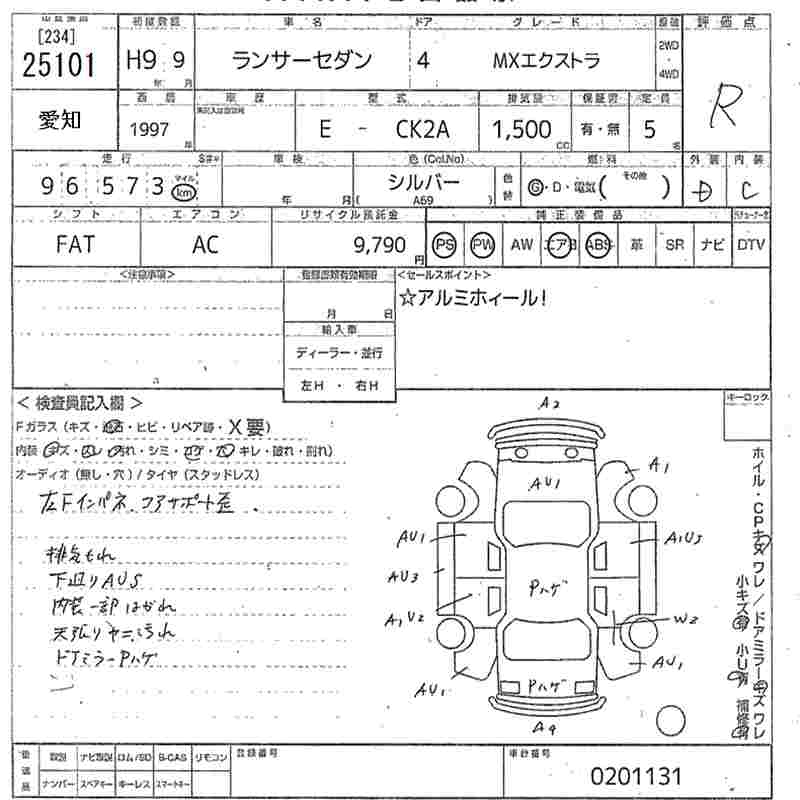 [234]
25101
初度登録
H9 9
年 月
車名
ランサーセダン
ドア
4
グレード
MXエクストラ
2WD
・
4WD
評価点
R
愛知
西暦
1997
年
車歴
型式
E - CK2A
排気量
1,500
CC
保証書
有・無
定員
5
名
走行
96573
マイル
km
車検
年 月
色(Col.No)
シルバー
( A69 )
色替
燃料
G・D・電気( その他 )
外装
D
内装
C
シフト
FAT
エアコン
AC
リサイクル預託金
9,790
円
純正装備品
PS PW AW エアB ABS 革 SR ナビ DTV
<注意事項>
登録書類有効期限
月 日
輸入車
ディーラー・並行
左H ・ 右H
<セールスポイント>
☆アルミホィール!
<検査員記入欄>
Fガラス(キズ・飛石・ヒビ・リペア跡・X要)
内装(キズ・スレ・汚れ・シミ・コゲ・穴・キレ・破れ・割れ)
オーディオ(無し・穴)/タイヤ(スタッドレス)
左Fインパネ.コアサポート歪.
排気もれ
下廻りAUS
内装一部はがれ
天張りヤニ汚れ
ドアミラーPハゲ
キーロック
A2
AU1
A1
AU1
A1U3
AU3
Pハゲ
A1U2
W2
AU1
Pハゲ
AU1
A4
ホイル・CPキズワレ/ドアミラーキズワレ
小キズ有 小U有 補修有
後送品
取説 ナビ取説 ロム/SD B-CAS リモコン
ナンバー スペアキー キーレス スマートキー
登録番号
車台番号
0201131